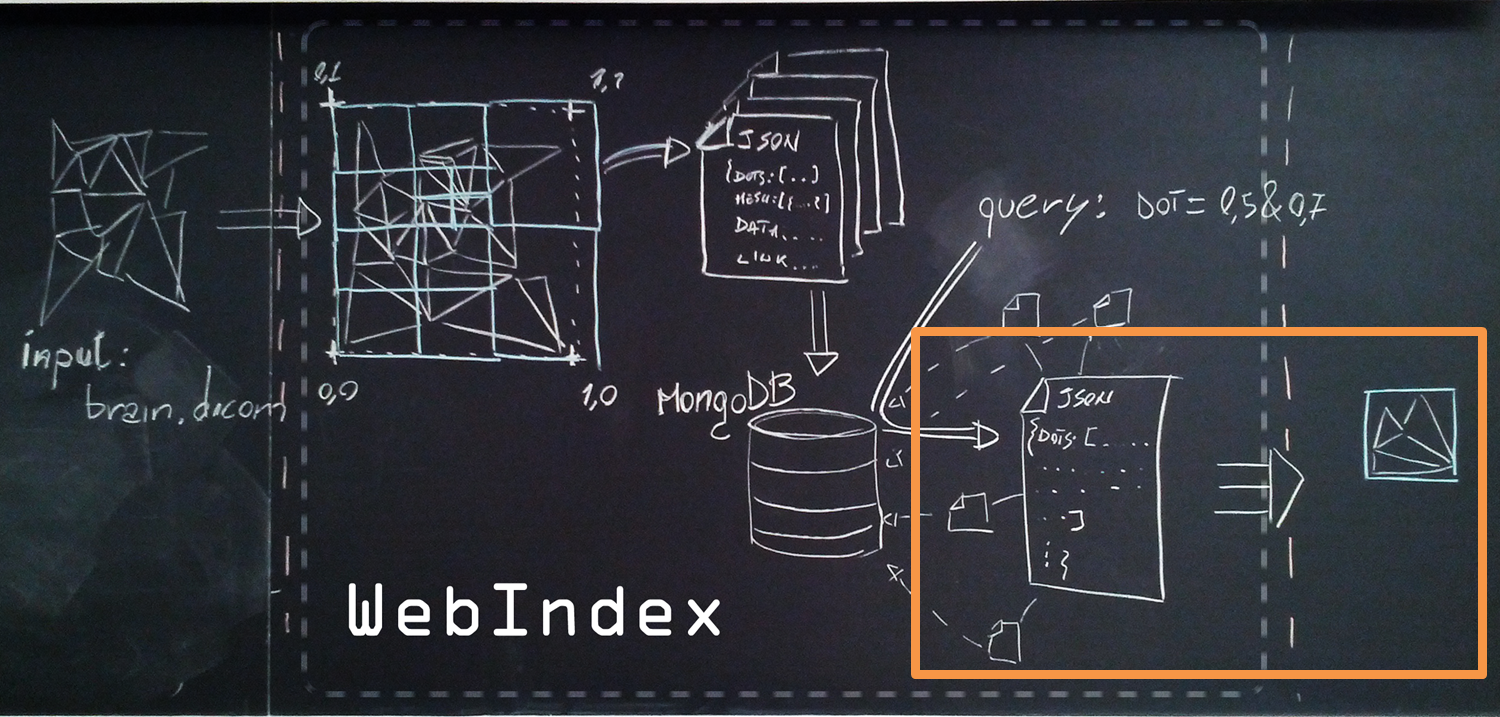 input:
brain.dicom
0,1
1,1
0,0
1,0
JSON
{DOTS:[..]
MESH:[{...}]
DATA....
LINK...
MongoDB
query: DOT = 0,5&0,7
JSON
{DOTS:[.....
.......
.......
..]
:}
WebIndex